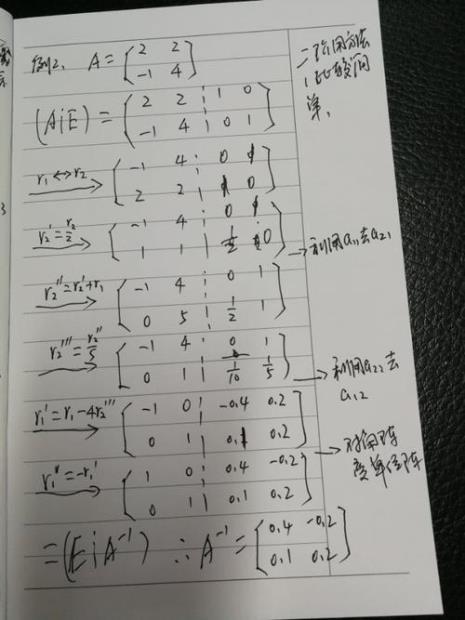 例2、 A = [2 2; -1 4]
二阶用方法1比较简单。
(A¦E) = [2 2 ¦ 1 0; -1 4 ¦ 0 1]
r₁↔r₂ → [-1 4 ¦ 0 1; 2 2 ¦ 1 0]
r₂' = r₂/2 → [-1 4 ¦ 0 1; 1 1 ¦ 1/2 0] → 利用a₁₁去a₂₁
r₂'' = r₂' + r₁ → [-1 4 ¦ 0 1; 0 5 ¦ 1/2 1]
r₂''' = r₂''/5 → [-1 4 ¦ 0 1; 0 1 ¦ 1/10 1/5] → 利用a₂₂去a₁₂
r₁' = r₁ - 4r₂''' → [-1 0 ¦ -0.4 0.2; 0 1 ¦ 0.1 0.2] → 对角阵变单位阵
r₁'' = -r₁' → [1 0 ¦ 0.4 -0.2; 0 1 ¦ 0.1 0.2]
= (E¦A⁻¹) ∴ A⁻¹ = [0.4 -0.2; 0.1 0.2]